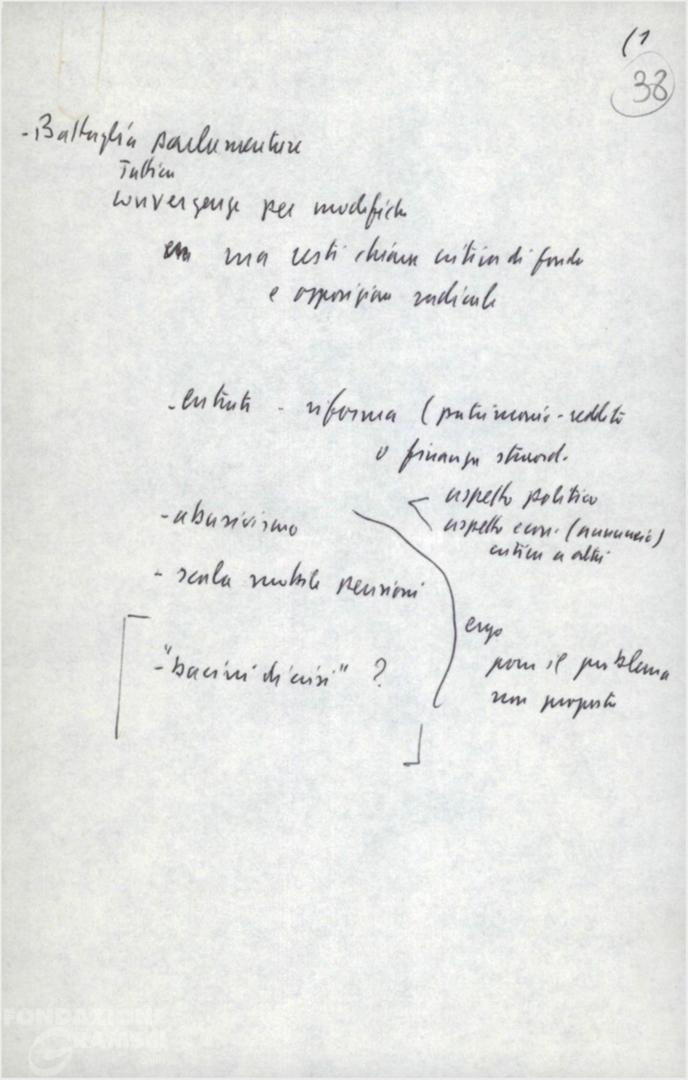 (1
38
- Battaglia parlamentare
Tattica
convergenze per modifiche
ma resti chiara critica di fondo
e opposizione radicale
- entrate - riforma (patrimonio - reddito
o finanza straord.
aspetto politico
- abusivismo
aspetto econ. (annuncio)
critica a altri
- scala mobile pensioni
ergo
- "bacini di crisi" ?
porre il problema
non proposta
FONDAZIONE
GRAMSCI